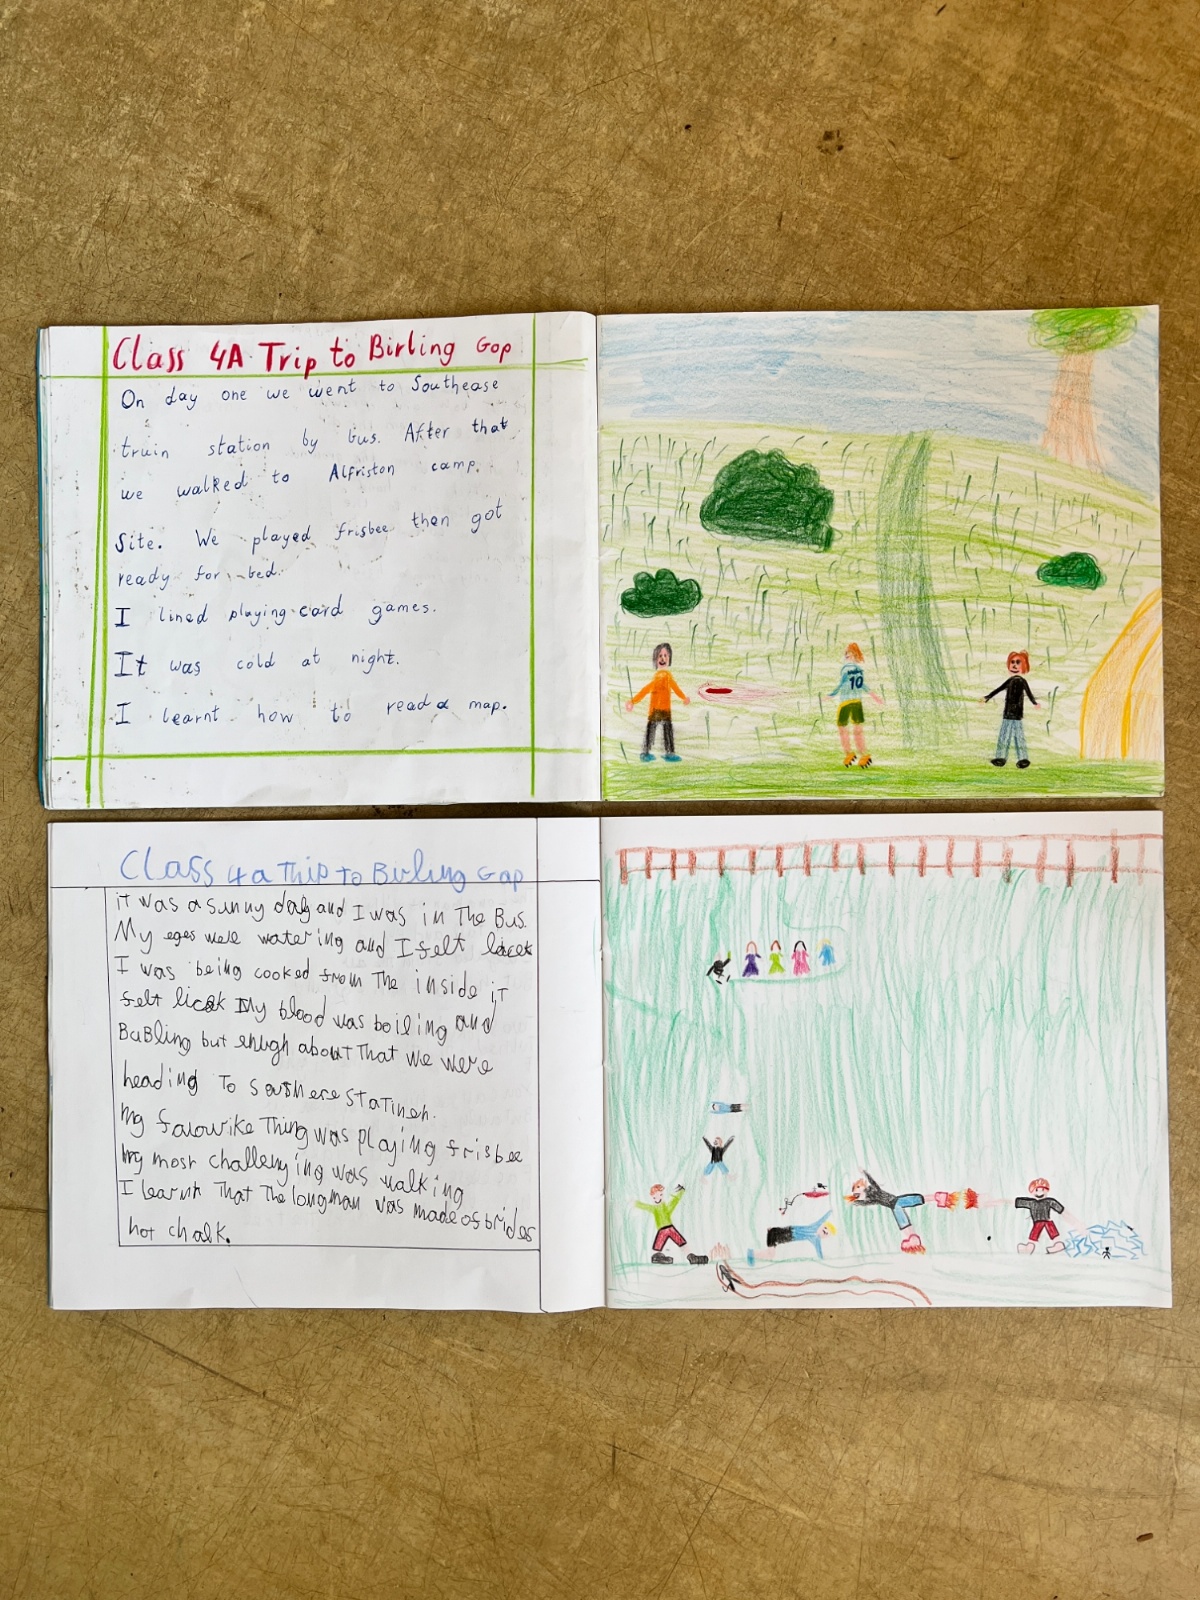 Class 4A Trip to Birling Gap
On day one we went to Southease
train station by bus. After that
we walked to Alfriston camp.
Site. We played frisbee then got
ready for bed.
I lined playing card games.
It was cold at night.
I learnt how to read a map.
10
Class 4a Thip to Birling Gap
it was a sunny day and I was in The Bus.
My eges were watering and I felt
I was being cooked from The inside iT
felt My blood was boiling and
BuBling but enugh about That we were
heading To
My Thing was playing frisbee
my most challenging was walking
I learnt That The longman was made of brides
not chalk.